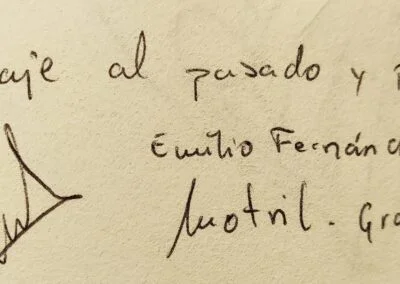 aje al pasado y p
Emilio Fernánd
Motril - Gra